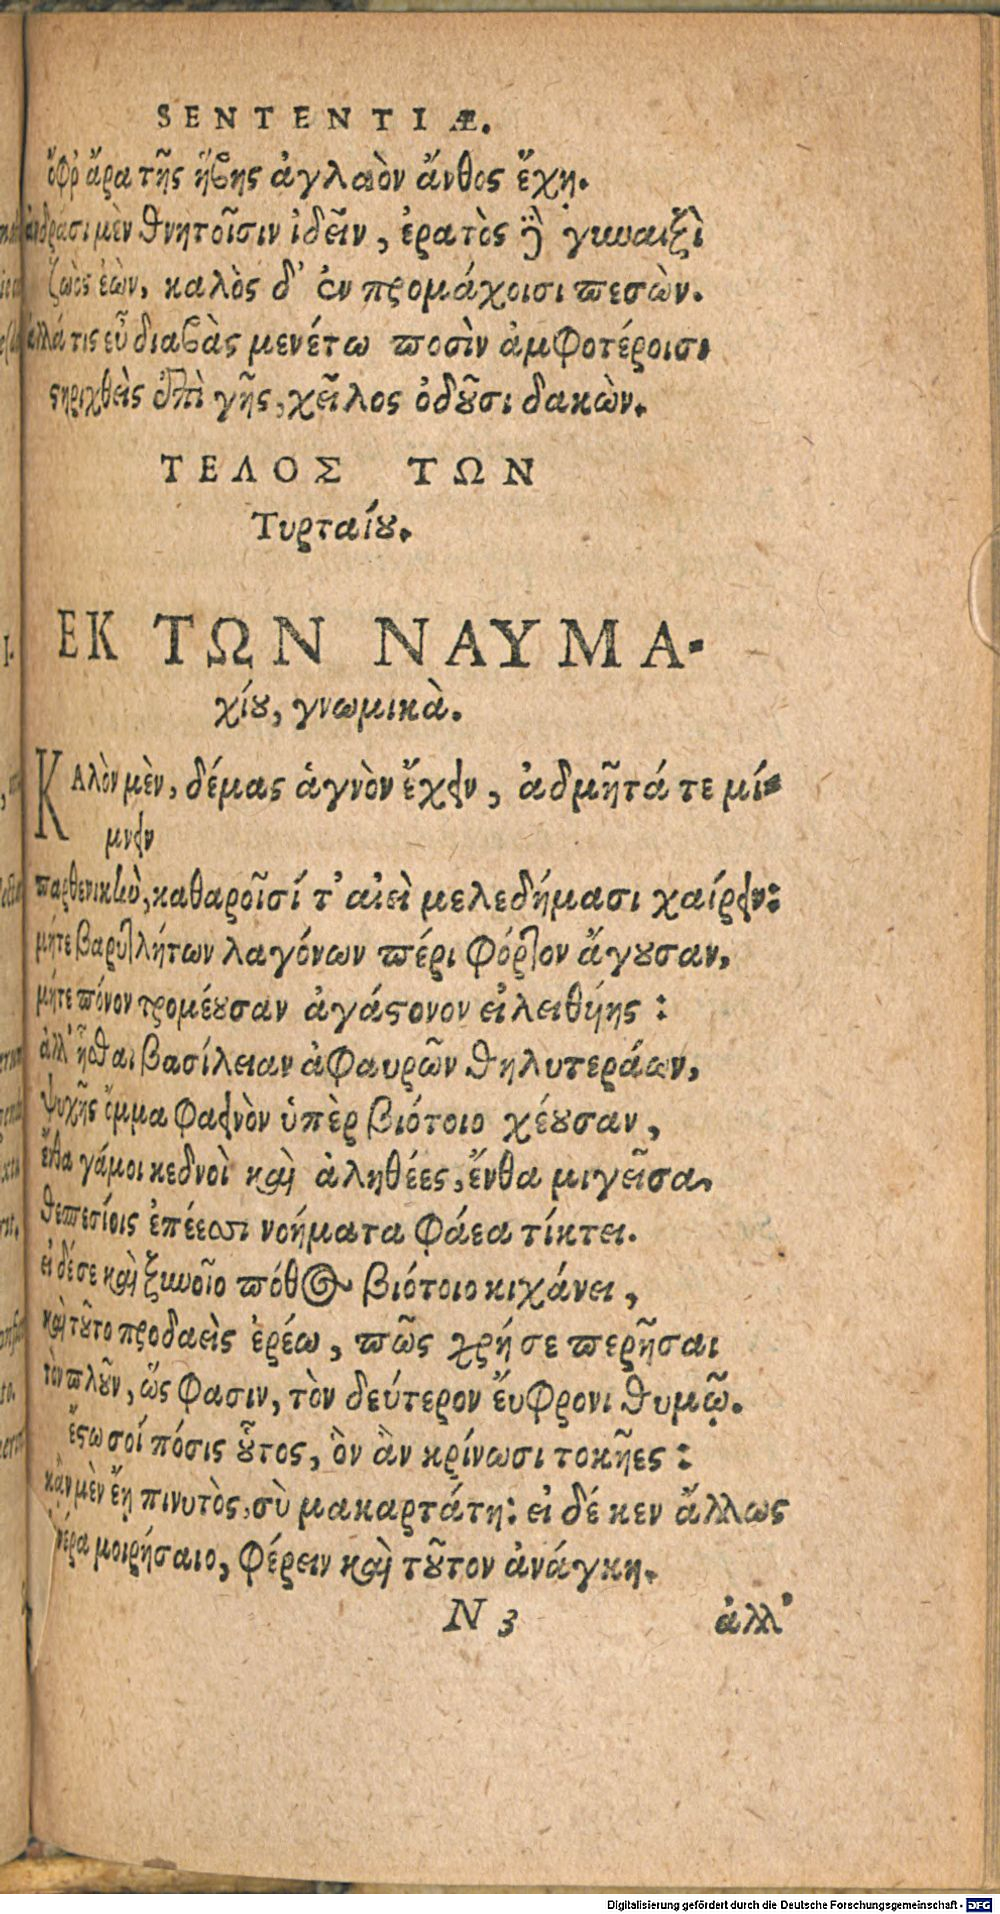 SENTENTIÆ.
ὄφρ' ἄρα τῆς ἥβης ἀγλαὸν ἄνθος ἔχῃ.
ἀνδράσι μὲν θνητοῖσιν ἰδεῖν, ἐρατὸς δὲ γυναιξὶ
ζωὸς ἐὼν, καλὸς δ' ἐν προμάχοισι πεσὼν.
ἀλλά τις εὖ διαβὰς μενέτω ποσὶν ἀμφοτέροισι
στηριχθεὶς ἐπὶ γῆς, χεῖλος ὀδοῦσι δακὼν.
ΤΕΛΟΣ ΤΩΝ
Τυρταίου.
ΕΚ ΤΩΝ ΝΑΥΜΑ-
χίου, γνωμικὰ.
ΚΑλὸν μὲν, δέμας ἁγνὸν ἔχειν, ἀδμῆτά τε μί-
μνειν
παρθενικὴν, καθαροῖσί τ' αἰεὶ μελεδήμασι χαίρειν:
μήτε βαρυτλήτων λαγόνων πέρι φόρτον ἄγουσαν,
μήτε πόνον τρομέουσαν ἀγάστονον εἰλειθύης:
ἀλλ' ἧσθαι βασίλειαν ἀφαυρῶν θηλυτεράων,
ψυχῆς ὄμμα φαεινὸν ὑπὲρ βιότοιο χέουσαν,
ἔνθα γάμοι κεδνοὶ καὶ ἀληθέες, ἔνθα μιγεῖσα,
θεπεσίοις ἐπέεσσι νοήματα φάεα τίκτει.
εἰ δέ σε καὶ ξυνοῖο πόθος βιότοιο κιχάνει,
καὶ τοῦτο προδαεὶς ἐρέω, πῶς χρή σε περῆσαι
τὸν πλοῦν, ὥς φασιν, τὸν δεύτερον ἔυφρονι θυμῷ.
ἔστω σοί πόσις οὗτος, ὃν ἂν κρίνωσι τοκῆες:
κᾂν μὲν ἔῃ πινυτὸς, σὺ μακαρτάτη: εἰ δέ κεν ἄλλως
ἀνέρα μοιρήσαιο, φέρειν καὶ τοῦτον ἀνάγκη.
N 3 ἀλλ'
Digitalisierung gefördert durch die Deutsche Forschungsgemeinschaft - DFG